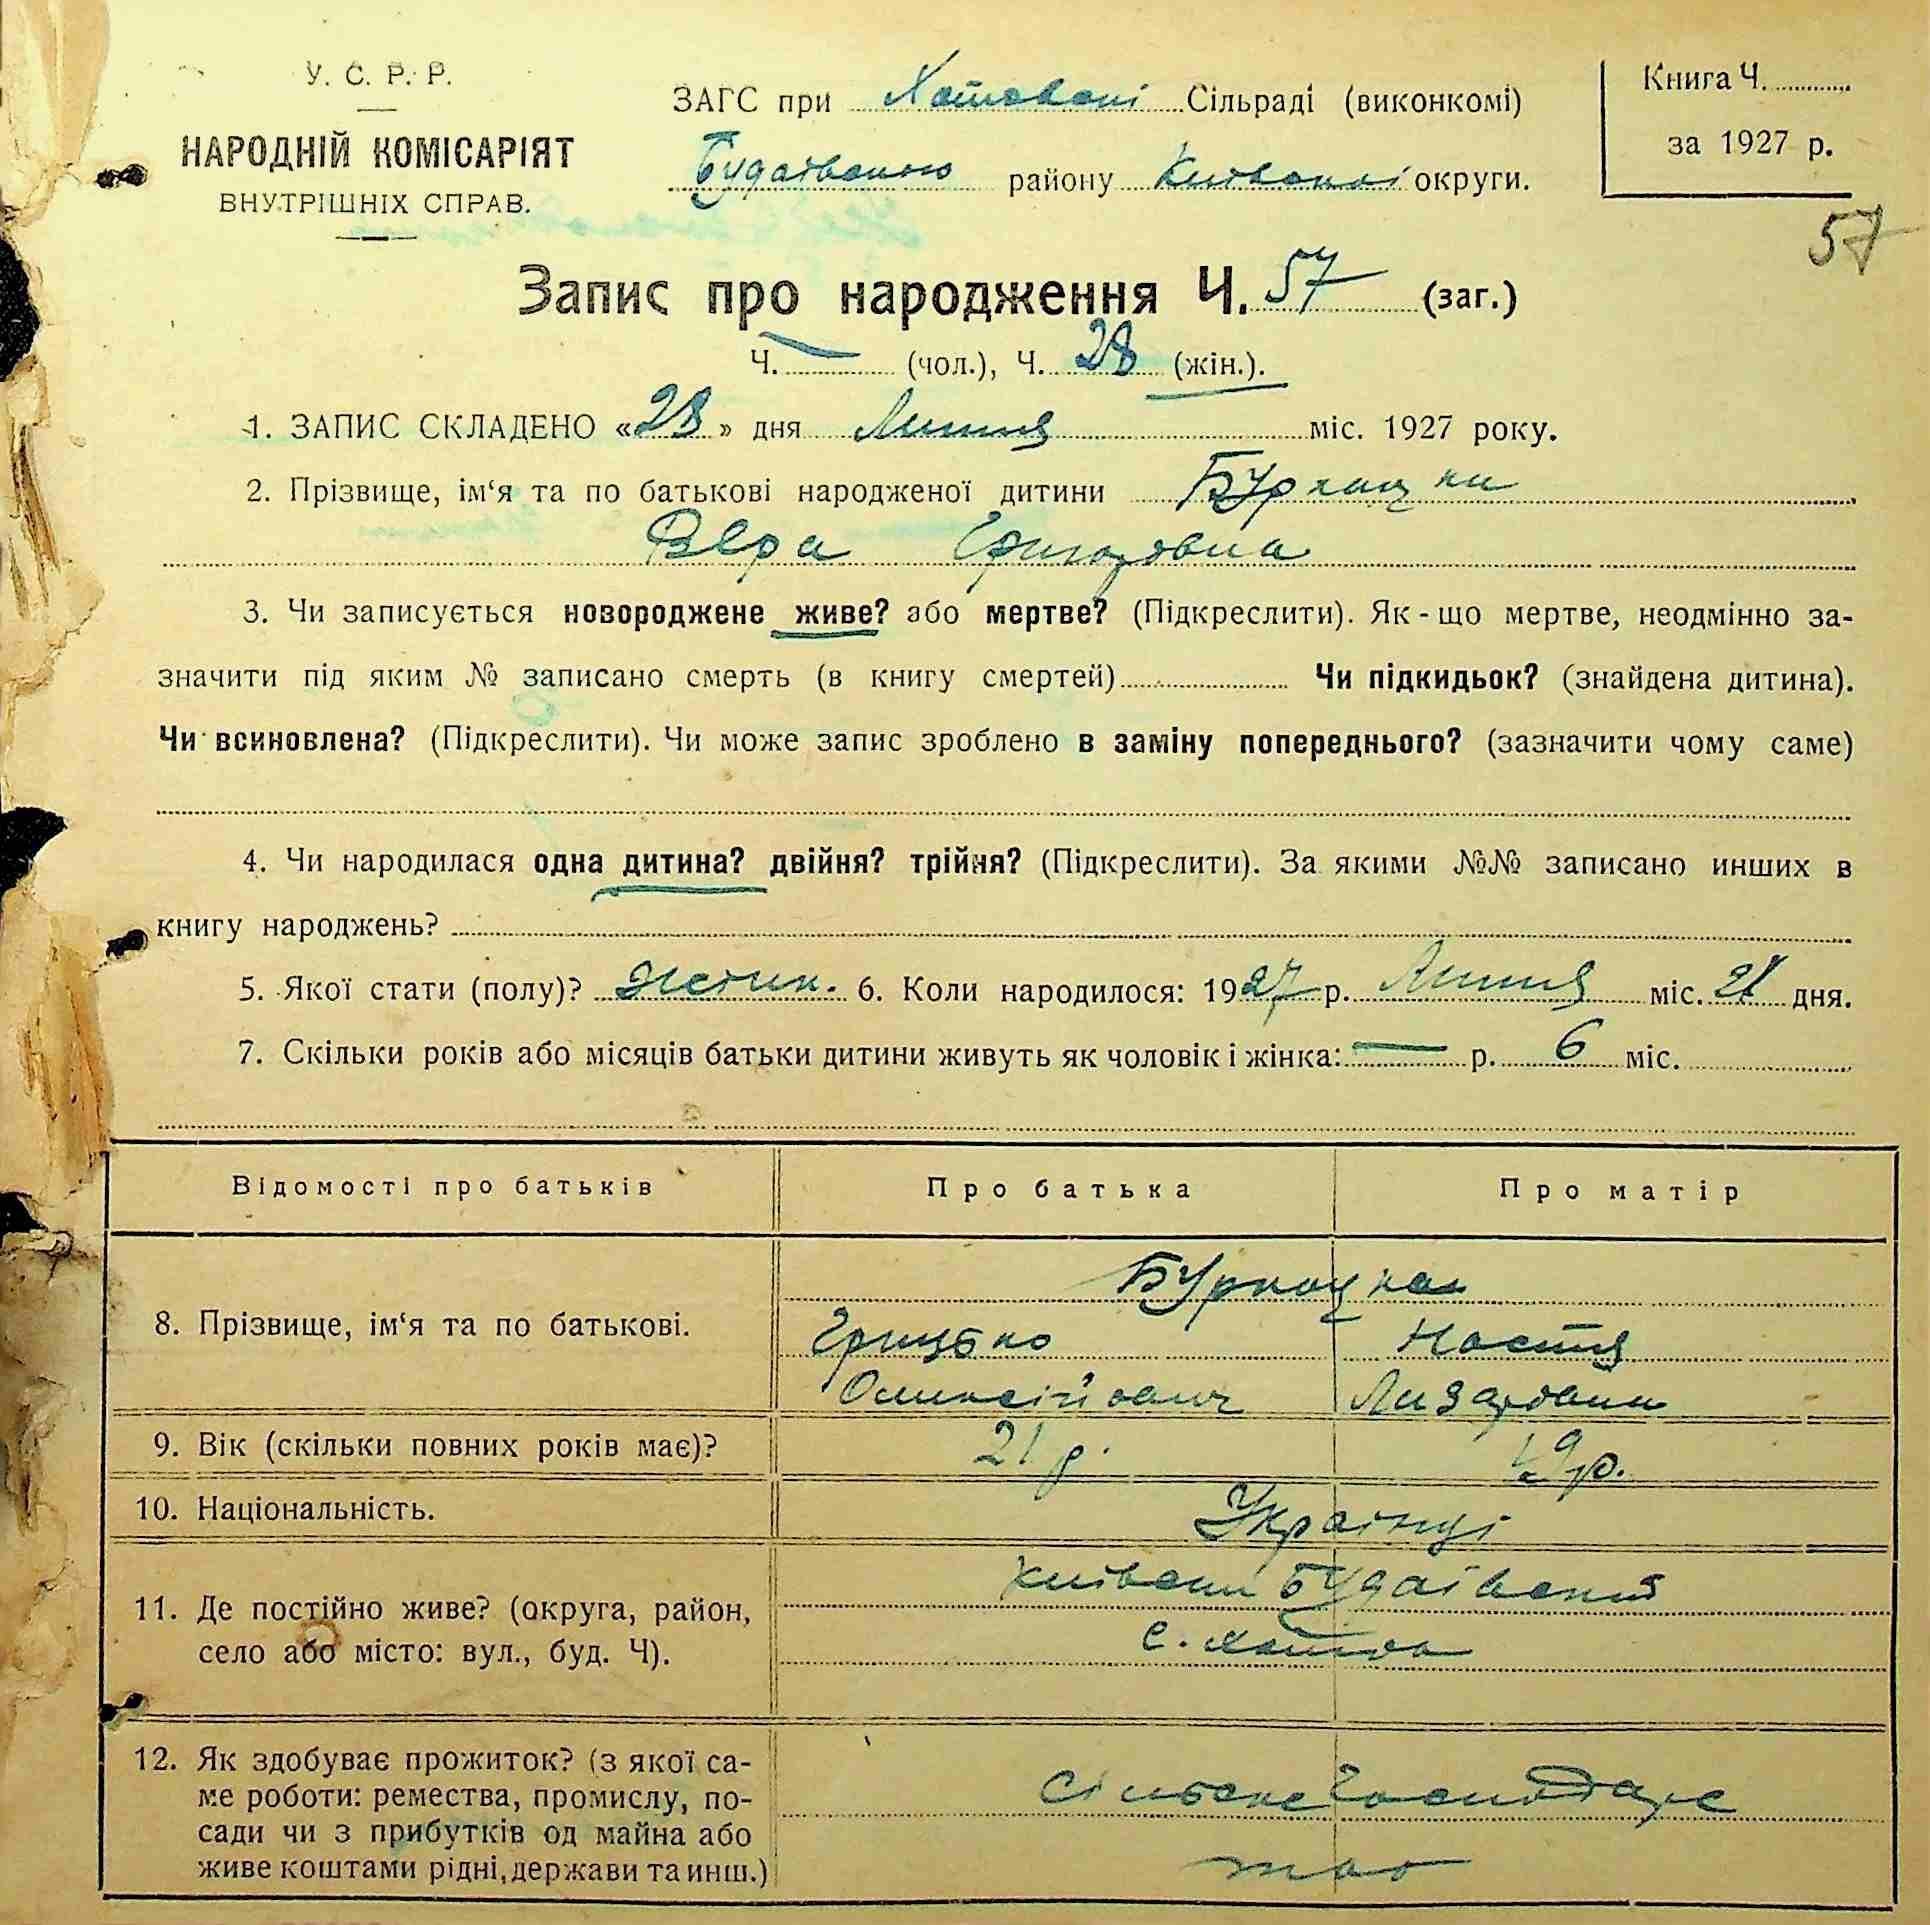 У. С. Р. Р.
НАРОДНІЙ КОМІСАРІЯТ
ВНУТРІШНІХ СПРАВ.
ЗАГС при Хотовські Сільраді (виконкомі)
Будаївського району Київської округи.
Книга Ч.
за 1927 р.
57
Запис про народження Ч. 57 (заг.)
Ч. — (чол.), Ч. 28 (жін.).
1. ЗАПИС СКЛАДЕНО «28» дня Липня міс. 1927 року.
2. Прізвище, ім‘я та по батькові народженої дитини
Вера Григоровна
3. Чи записується новороджене живе? або мертве? (Підкреслити). Як-що мертве, неодмінно за-
значити під яким № записано смерть (в книгу смертей) Чи підкидьок? (знайдена дитина).
Чи всиновлена? (Підкреслити). Чи може запис зроблено в заміну попереднього? (зазначити чому саме)
4. Чи народилася одна дитина? двійня? трійня? (Підкреслити). За якими №№ записано инших в
книгу народжень?
5. Якої стати (полу)? 6. Коли народилося: 1927 р. Липня міс. дня.
7. Скільки років або місяців батьки дитини живуть як чоловік і жінка: — р. 6 міс.
Відомості про батьків Про батька Про матір
8. Прізвище, ім‘я та по батькові.
Грицько Настя
Олексійович Лазаровна
9. Вік (скільки повних років має)? 21 р. 19 р.
10. Національність. Українці
11. Де постійно живе? (округа, район,
село або місто: вул., буд. Ч).
Київський Будаївський
с. Хотів
12. Як здобуває прожиток? (з якої са-
ме роботи: ремества, промислу, по-
сади чи з прибутків од майна або
живе коштами рідні, держави та инш.)
Сільське господарс
тво